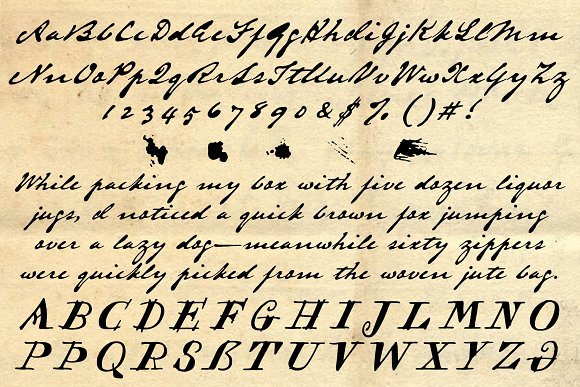 AaBbCcDdEeFfGgHhIiJjKkLlMm
NnOoPpQqRrSsTtUuVvWwXxYyZz
1234567890&$%()#!
While packing my box with five dozen liquor
jugs, I noticed a quick brown fox jumping
over a lazy dog—meanwhile sixty zippers
were quickly picked from the woven jute bag.
ABCDEFGHIJLMNO
PÞQRSẞTUVWXYZ